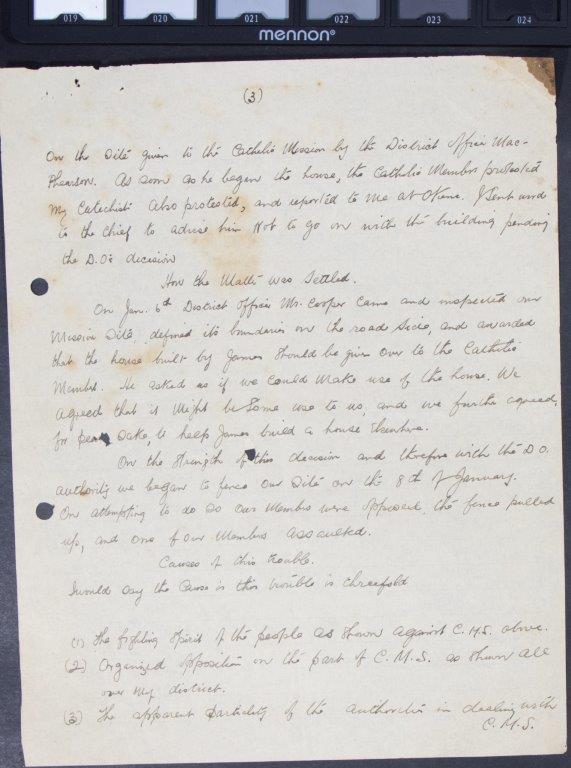 019 020 021 022 023 024
mennon®
(3)
On the Site given to the Catholic Mission by the District Officer Mac-
Phearson. As soon as he began the house, the Catholic Members protested
My Catechist also protested, and reported to me at Okene. I sent word
to the Chief to advise him not to go on with the building pending
the D.O's decision
How the Matter was Settled.
On Jan. 6th District Officer Mr. Cooper came and inspected our
Mission Site, defined its boundaries on the road side, and awarded
that the house built by James should be given over to the Catholic
Members. He asked us if we could make use of the house. We
agreed that it might be some use to us, and we further agreed,
for peace sake, to help James build a house elsewhere.
On the strength of this decision and therefore with the D.O.
authority we began to fence our site on the 8th of January.
On attempting to do so our Members were opposed, the fence pulled
up, and one of our Members assaulted.
Causes of this trouble.
I would say the cause is this trouble is threefold
(1) The fighting spirit of the people as shown against C.M.S. above.
(2) Organized opposition on the part of C.M.S. as shown all
over my district.
(3) The apparent partiality of the authorities in dealing with
C.M.S.